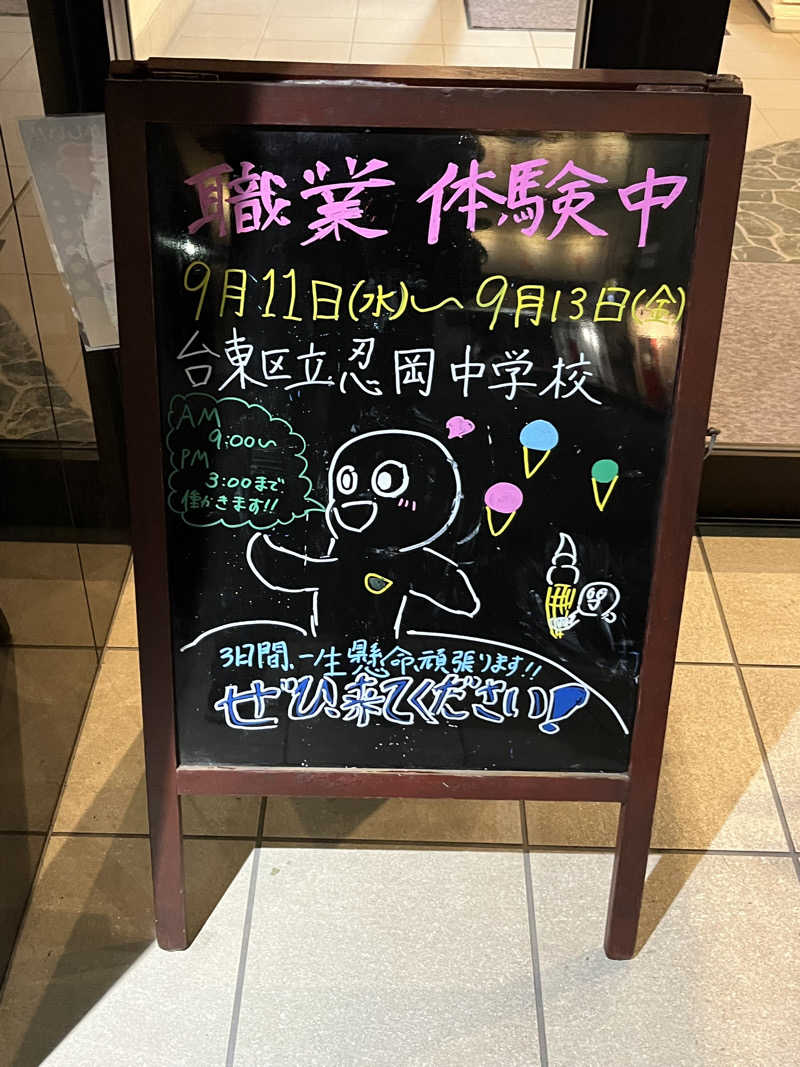 職業体験中
9月11日(水)〜9月13日(金)
台東区立忍岡中学校
AM
9:00〜
PM
3:00まで
働きます!!
3日間、一生懸命、頑張ります!!
ぜひ、来てください!